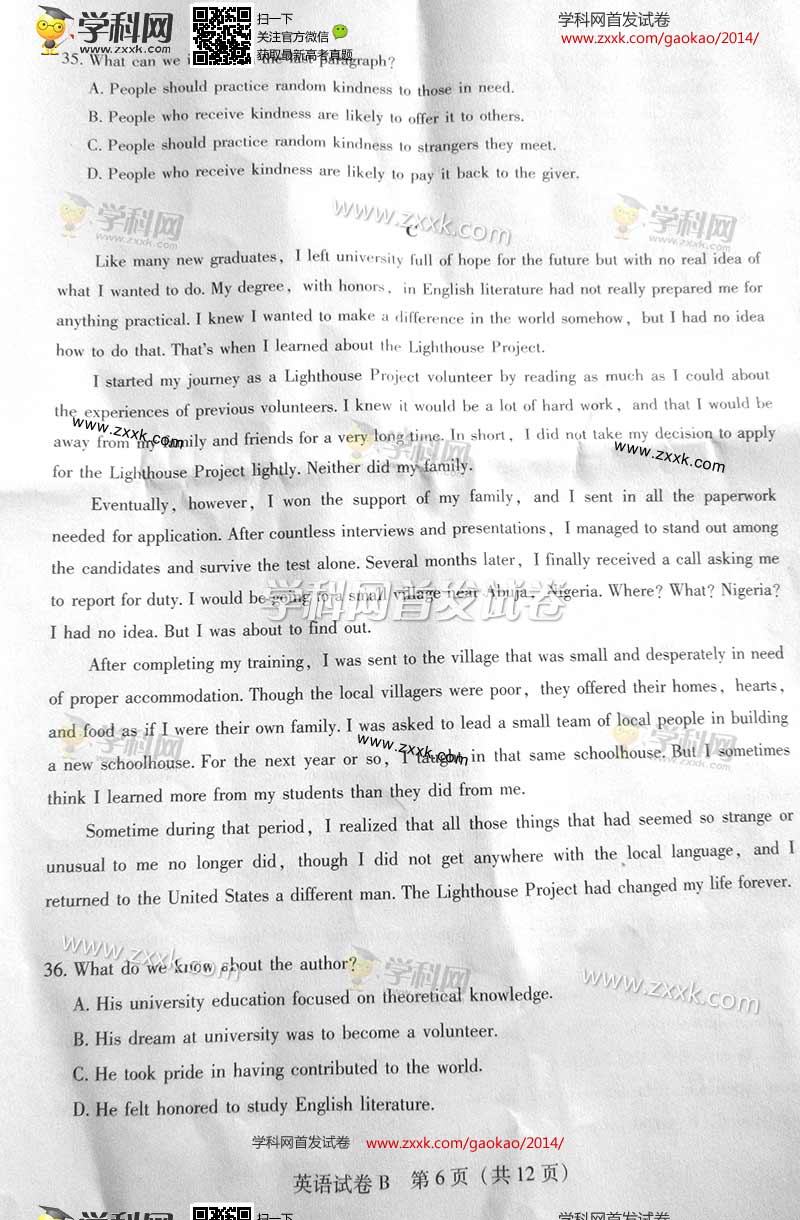 学科网
www.zxxk.com
扫一下
关注官方微信
获取最新高考真题
学科网首发试卷
www.zxxk.com/gaokao/2014/
35. What can we the last paragraph?
A. People should practice random kindness to those in need.
B. People who receive kindness are likely to offer it to others.
C. People should practice random kindness to strangers they meet.
D. People who receive kindness are likely to pay it back to the giver.
学科网
www.zxxk.com
www.zxxk.com
学科网
www.zxxk.com
C
Like many new graduates, I left university full of hope for the future but with no real idea of
what I wanted to do. My degree, with honors, in English literature had not really prepared me for
anything practical. I knew I wanted to make a difference in the world somehow, but I had no idea
how to do that. That's when I learned about the Lighthouse Project.
I started my journey as a Lighthouse Project volunteer by reading as much as I could about
the experiences of previous volunteers. I knew it would be a lot of hard work, and that I would be
www.zxxk.com
学科网
www.zxxk.com
away from my family and friends for a very long time. In short, I did not take my decision to apply
for the Lighthouse Project lightly. Neither did my family.
Eventually, however, I won the support of my family, and I sent in all the paperwork
needed for application. After countless interviews and presentations, I managed to stand out among
the candidates and survive the test alone. Several months later, I finally received a call asking me
to report for duty. I would be going to a small village near Abuja, Nigeria. Where? What? Nigeria?
学科网首发试卷
I had no idea. But I was about to find out.
After completing my training, I was sent to the village that was small and desperately in need
of proper accommodation. Though the local villagers were poor, they offered their homes, hearts,
and food as if I were their own family. I was asked to lead a small team of local people in building
学科网
www.zxxk.com
www.zxxk.com
学科网
www.zxxk.com
a new schoolhouse. For the next year or so, I taught in that same schoolhouse. But I sometimes
think I learned more from my students than they did from me.
Sometime during that period, I realized that all those things that had seemed so strange or
unusual to me no longer did, though I did not get anywhere with the local language, and I
returned to the United States a different man. The Lighthouse Project had changed my life forever.
www.zxxk.com
学科网
www.zxxk.com
www.zxxk.com
36. What do we know about the author?
A. His university education focused on theoretical knowledge.
B. His dream at university was to become a volunteer.
C. He took pride in having contributed to the world.
D. He felt honored to study English literature.
学科网首发试卷 www.zxxk.com/gaokao/2014/
英语试卷 B 第 6 页 (共 12 页)
学科网
扫一下
学科网首发试卷